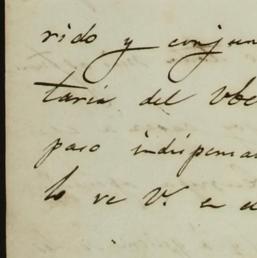 rido y conjun
taria del Vbe
paso indispensa
lo ve V. en e